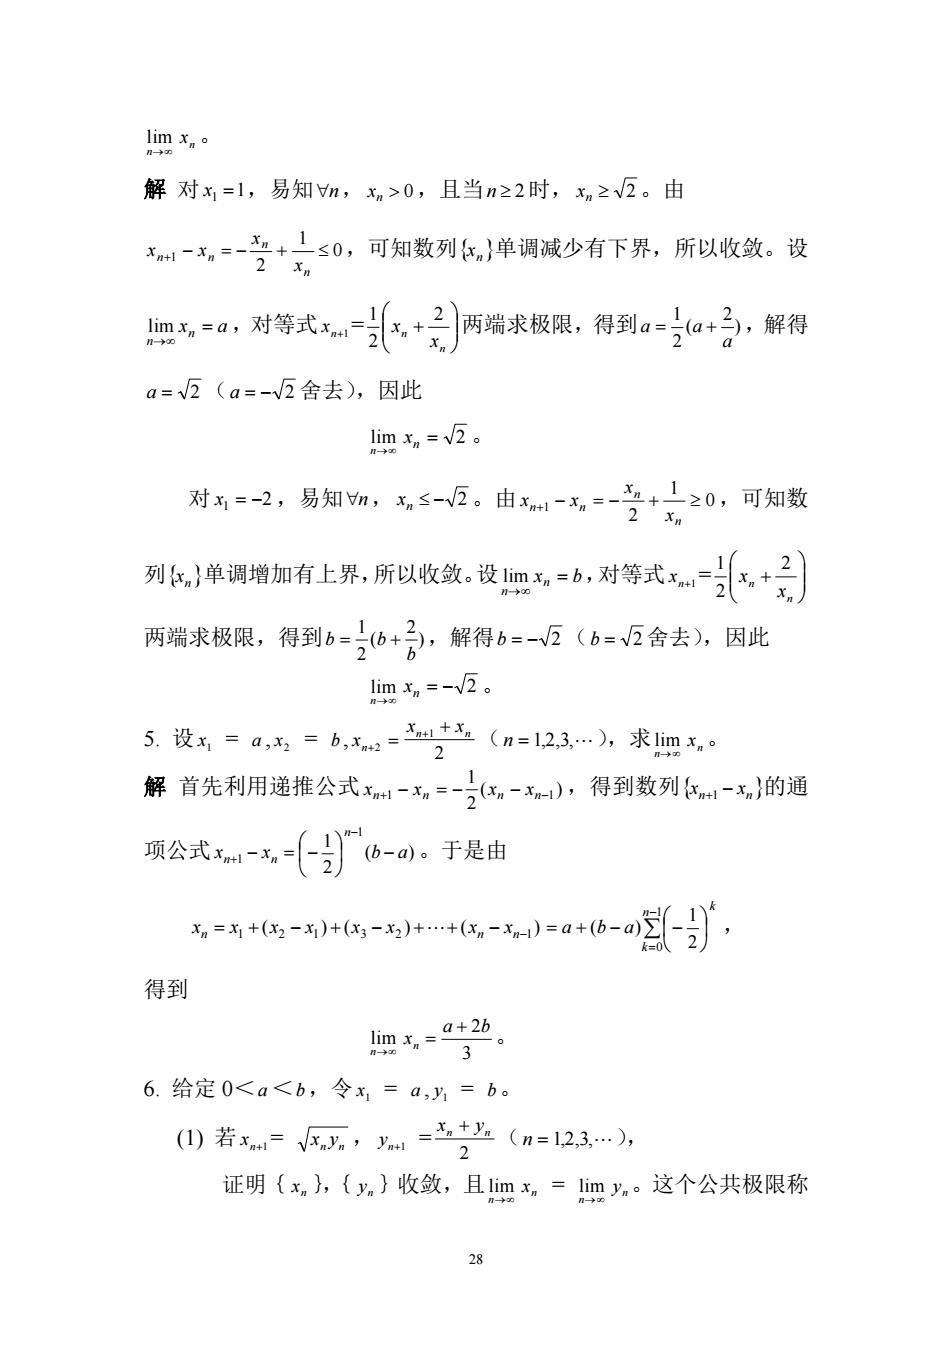 lim_{n→∞} x_n。
解 对 x_1 =1，易知∀n，x_n > 0，且当 n ≥ 2 时，x_n ≥ √2。由
x_{n+1} − x_n = −x_n/2 + 1/x_n ≤ 0，可知数列{x_n}单调减少有下界，所以收敛。设
lim_{n→∞} x_n = a，对等式 x_{n+1} = 1/2 (x_n + 2/x_n) 两端求极限，得到 a = 1/2 (a + 2/a)，解得
a = √2（a = −√2 舍去），因此
lim_{n→∞} x_n = √2。
对 x_1 = −2，易知∀n，x_n ≤ −√2。由 x_{n+1} − x_n = −x_n/2 + 1/x_n ≥ 0，可知数
列{x_n}单调增加有上界，所以收敛。设 lim_{n→∞} x_n = b，对等式 x_{n+1} = 1/2 (x_n + 2/x_n)
两端求极限，得到 b = 1/2 (b + 2/b)，解得 b = −√2（b = √2 舍去），因此
lim_{n→∞} x_n = −√2。
5. 设 x_1 = a , x_2 = b , x_{n+2} = (x_{n+1} + x_n)/2（n = 1,2,3,⋯），求 lim_{n→∞} x_n。
解 首先利用递推公式 x_{n+1} − x_n = −1/2 (x_n − x_{n−1})，得到数列{x_{n+1} − x_n}的通
项公式 x_{n+1} − x_n = (−1/2)^{n−1} (b − a)。于是由
x_n = x_1 + (x_2 − x_1) + (x_3 − x_2) + ⋯ + (x_n − x_{n−1}) = a + (b − a) ∑_{k=0}^{n−1} (−1/2)^k，
得到
lim_{n→∞} x_n = (a + 2b)/3。
6. 给定 0＜a＜b，令 x_1 = a , y_1 = b。
(1) 若 x_{n+1} = √(x_n y_n)，y_{n+1} = (x_n + y_n)/2（n = 1,2,3,⋯），
证明｛x_n｝,｛y_n｝收敛，且 lim_{n→∞} x_n = lim_{n→∞} y_n。这个公共极限称
28